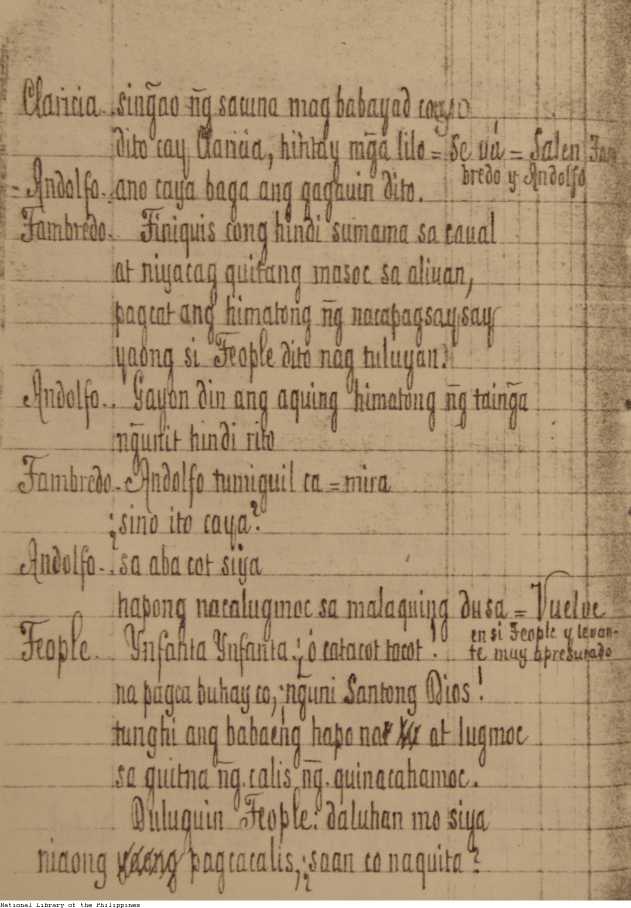 Claricia.. sing̃ao ñg sacuna mag babayad cayo
dito cay Claricia, hihtay mg̃a lilo = Se vá = Salen Fam
bredo y Andolfo
= Andolfo.. ano caya baga ang gagauin dito.
Fambredo. Finiquis cong hindi sumama sa caual
at niyacag quitang masoc sa aliuan,
pagcat ang himatong ñg nacapagsaysay
yaong si Feople dito nag tuluyan.
Andolfo.. Gayon din ang aquing himatong ñg taing̃a
ng̃unit hindi rito
Fambredo.. Andolfo tumiguil ca = mira
¿sino ito caya?
Andolfo.. sa aba cot siya
hapong nacalugmoc sa malaquing dusa = Vuelve
en si Feople y levan-
te muy apresurado
Feople. Ynfanta Ynfanta ¿ó catacot tacot!
na pagca buhay co, ;ng̃uni Santong Dios!
tunghi ang babaeng hapo na at lugmoc
sa guitna ñg. calis ñg. quinacahamoc.
Duluguin Feople: daluhan mo siya
niaong pagcacalis, ;saan co naquita?
National Library of the Philippines